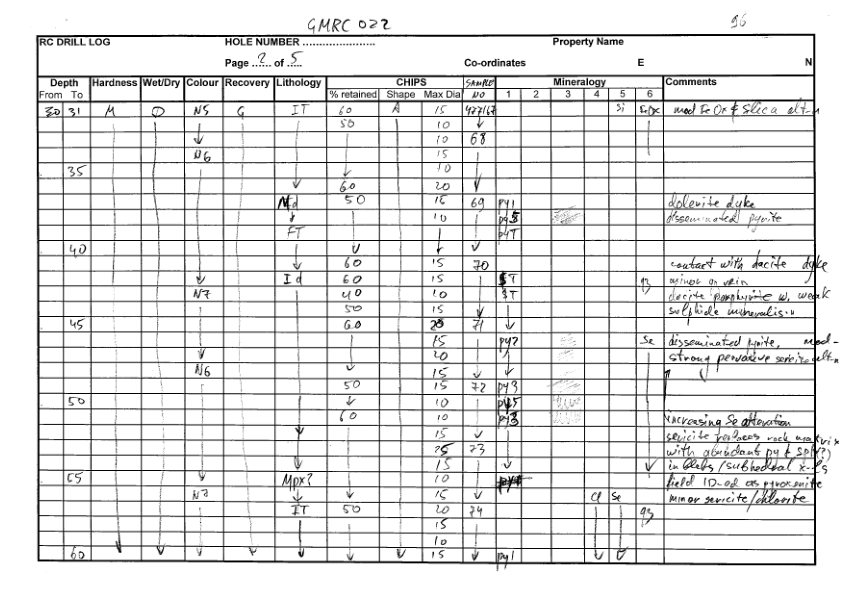 GMRC 022
96
RC DRILL LOG HOLE NUMBER ........................ Property Name
Page ..2.. of .5.. Co-ordinates E N
Depth Hardness Wet/Dry Colour Recovery Lithology CHIPS SAMPLE Mineralogy Comments
From To % retained Shape Max Dia NO 1 2 3 4 5 6
30 31 M D N5 G IT 60 A 15 47767 Si FeOx mod Fe Ox & Slica alt-n
50 10
10 68
N6 15
35 10
60 20
Md 50 15 69 py1 dolerite dyke
10 py5 disseminated pyrite
FT pyT
40
60 15 70 contact with dacite dyke
Id 60 15 T qz minor qz vein
N7 40 10 T dacite porphyrite w. weak
50 15 sulphide mineralis-n
45 60 20 71
15 py2 Se disseminated pyrite, mod-
20 strong pervasive sericite alt-n
N6 15
50 15 72 py3
50 10 py5
60 10 py3 increasing Se alteration
15 sericite replaces rock matrix
25 73 with abundant py & sp(?)
15 in blebs/subhedral x-ls
55 Mpx? 10 field ID-ed as pyroxenite
N7 15 Cl Se minor sericite/chlorite
IT 50 20 74 qz
15
10
60 15 py1